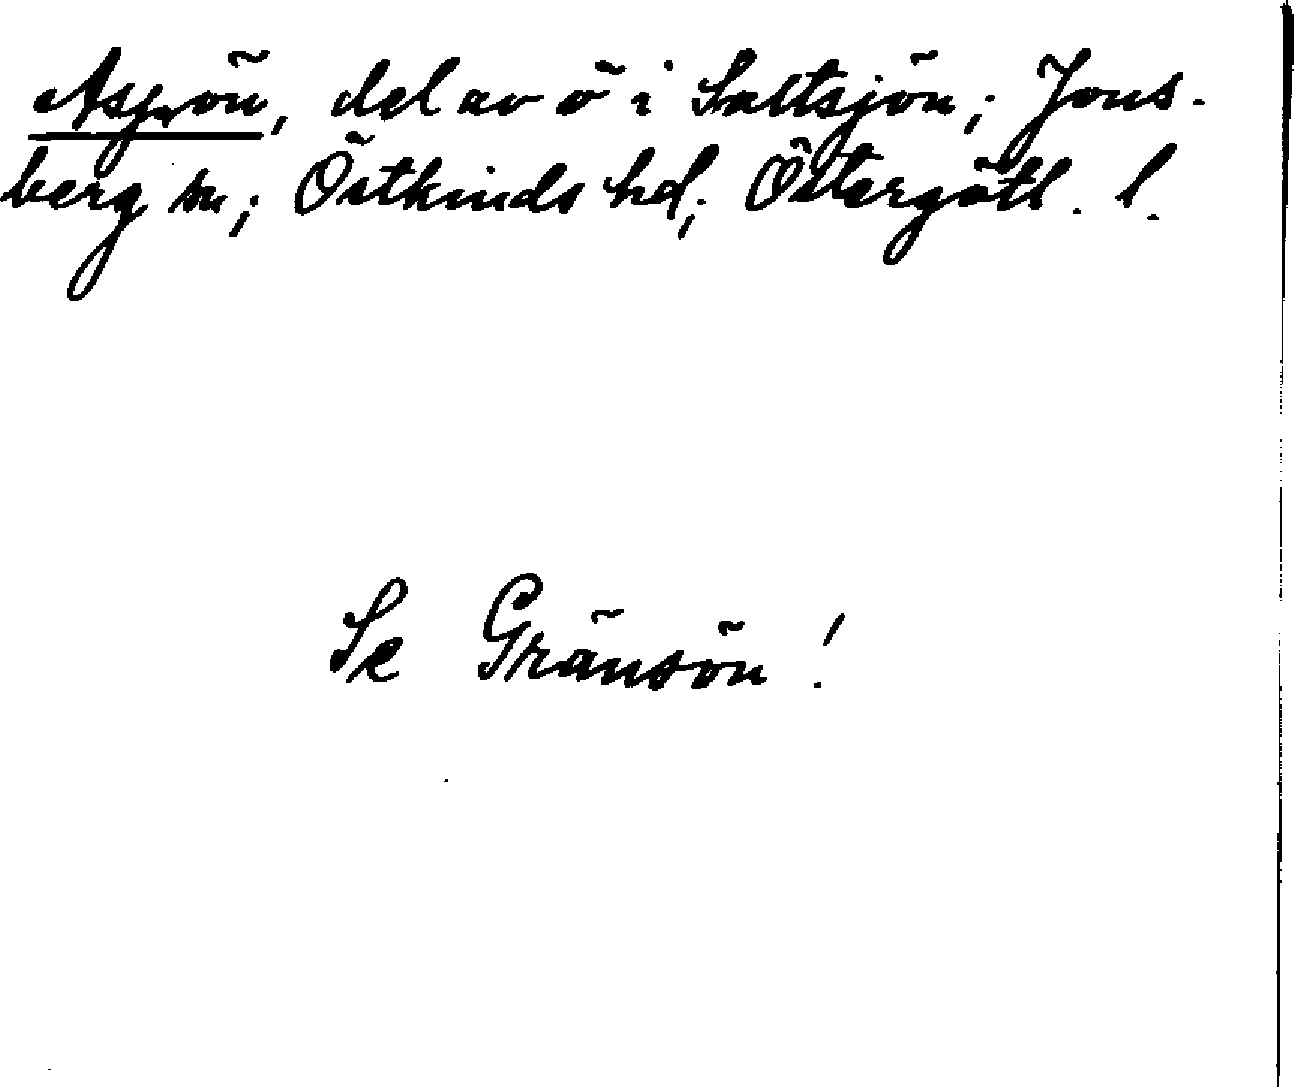 Aspön, del av ö i Saltsjön; Jons-
berg sn; Östkinds hd; Östergötl. l.
Se Gränsön!